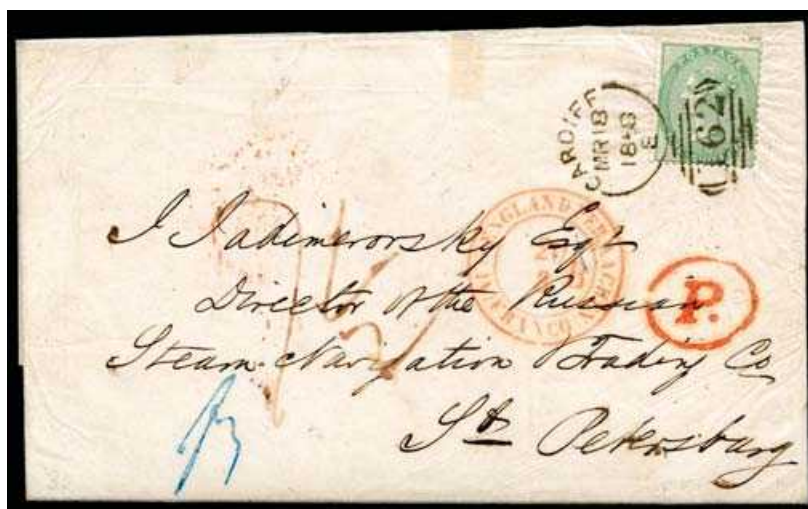 POSTAGE
CARDIFF
MR 18
1858
E
162
ENGLAND
FRANCO
P.
J Jadimerovsky Esqr
Director of the Russian
Steam Navigation & Trading Co
St Petersburg